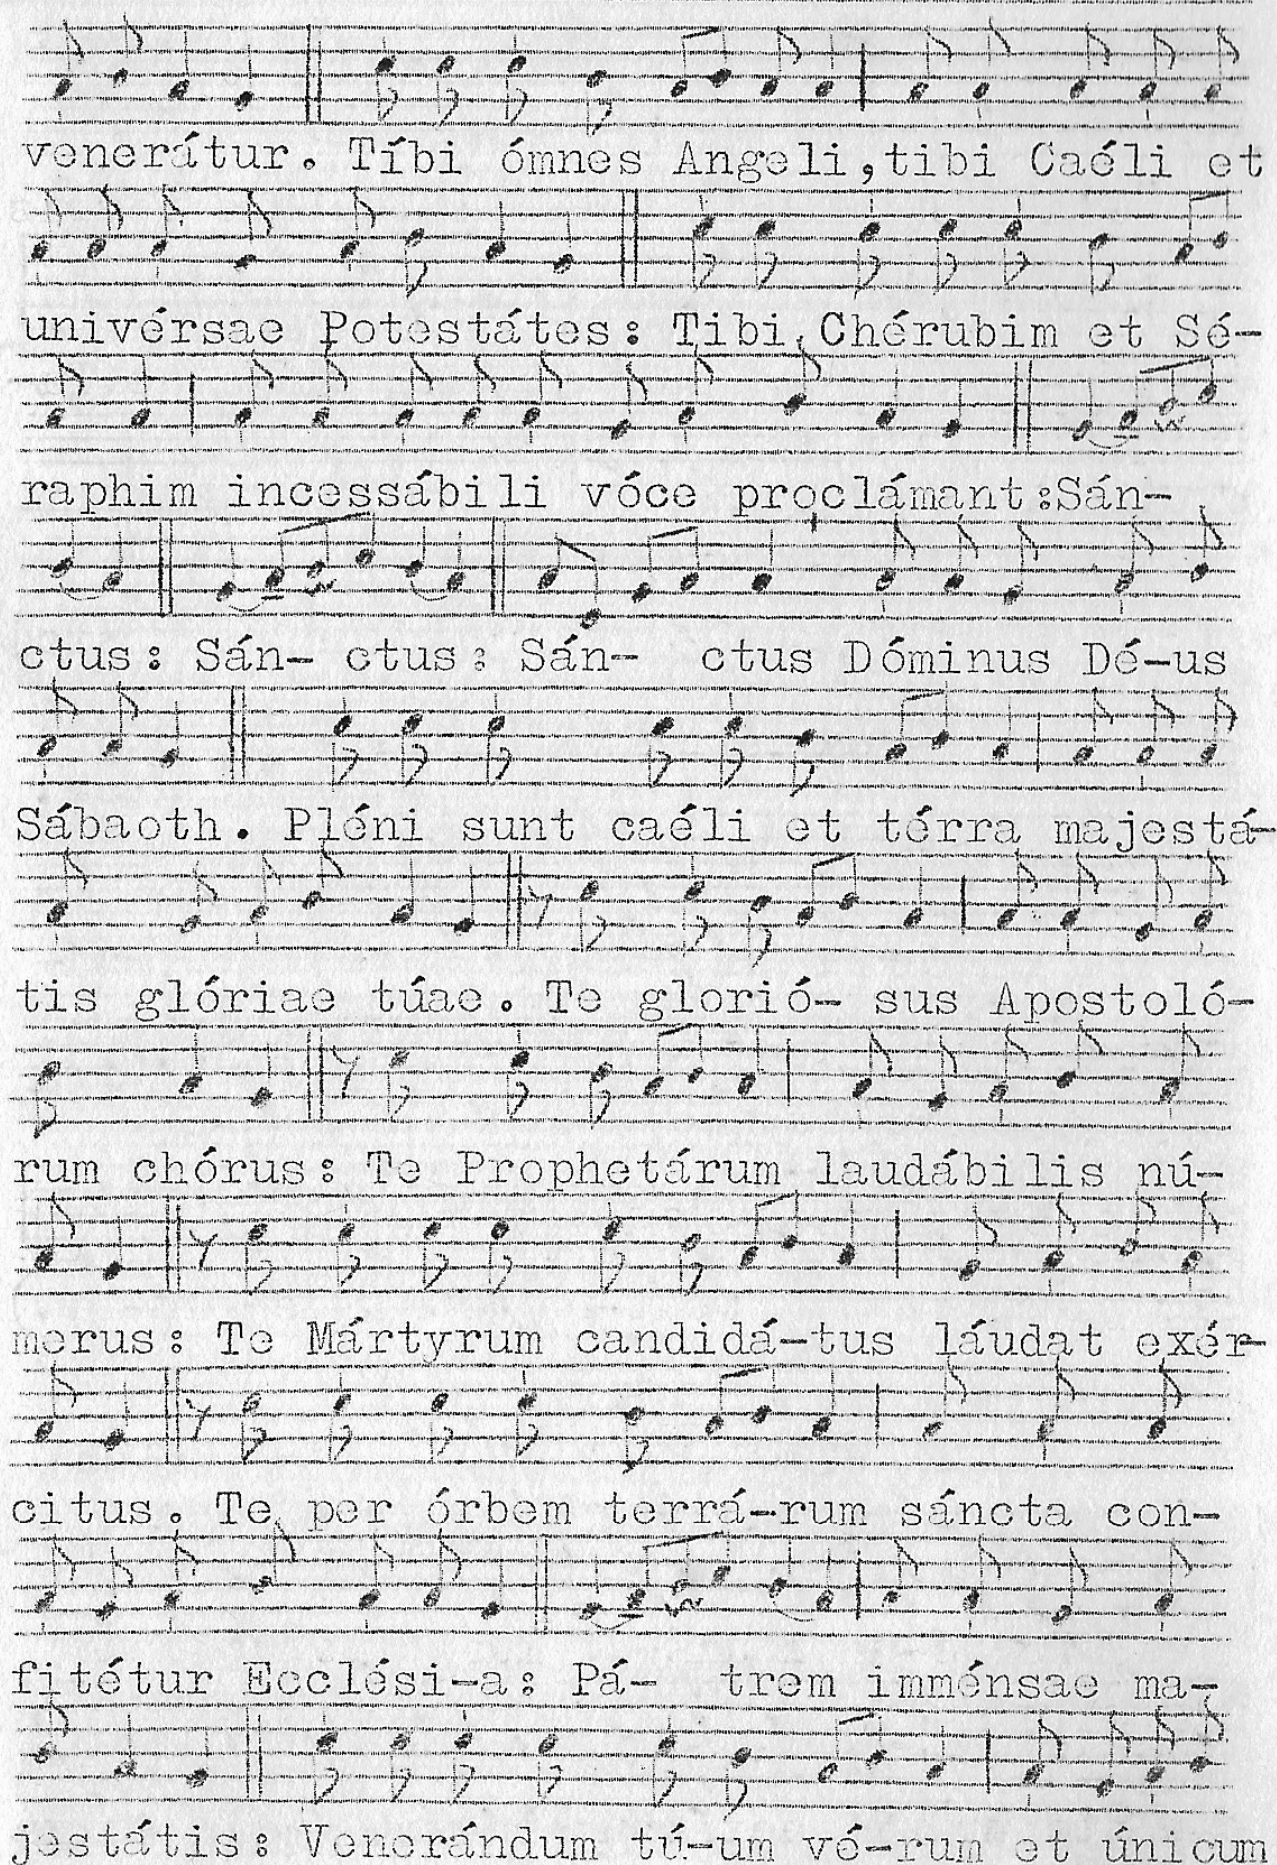 venerátur. Tíbi ómnes Angeli, tibi Caéli et
univérsae Potestátes: Tibi Chérubim et Sé-
raphim incessábili vóce proclámant: Sán-
ctus: Sán- ctus: Sán- ctus Dóminus Dé-us
Sábaoth. Pléni sunt caéli et térra majestá-
tis glóriae túae. Te glorió- sus Apostoló-
rum chórus: Te Prophetárum laudábilis nú-
merus: Te Mártyrum candidá-tus láudat exér-
citus. Te per órbem terrá-rum sáncta con-
fitétur Ecclési-a: Pá- trem imménsae ma-
jestátis: Venerándum tú-um vé-rum et únicum